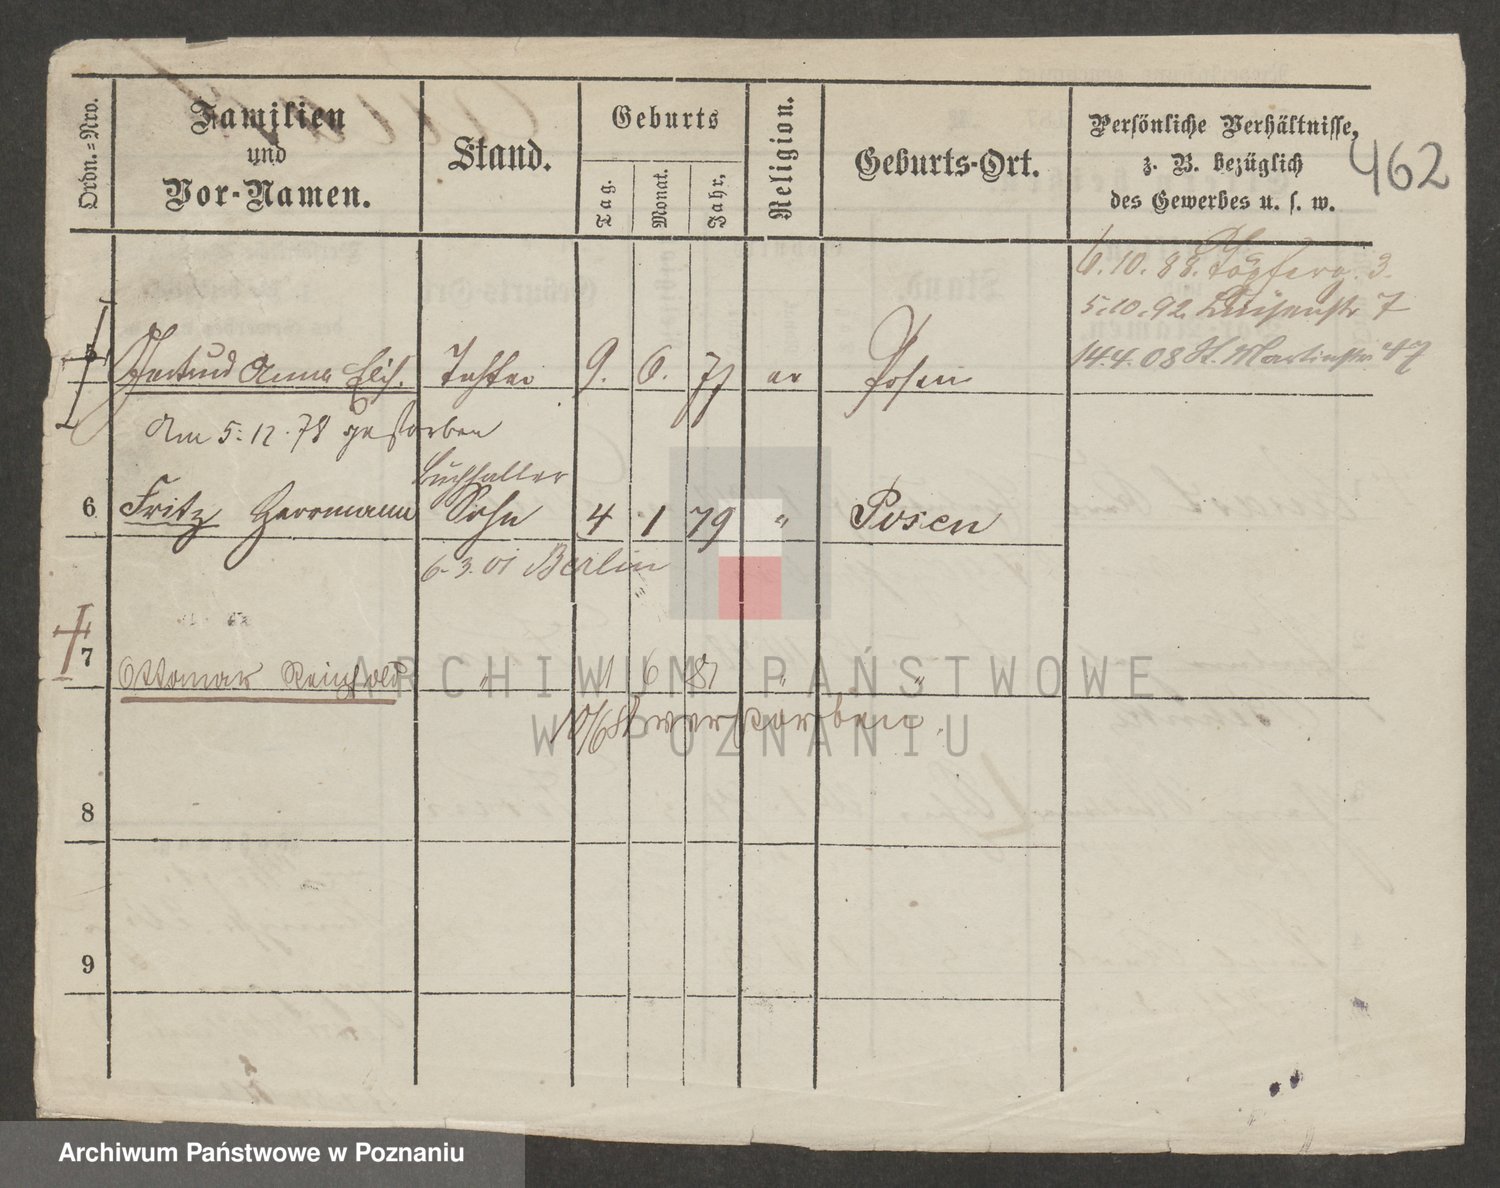 Ordn.=Nro.
Familien
und
Vor-Namen.
Stand.
Geburts
Tag.
Monat.
Jahr.
Religion.
Geburts-Ort.
Persönliche Verhältnisse,
z. B. bezüglich
des Gewerbes u. s. w.
462
6.10.88.
5.10.92. Luisenstr 7
14.4.08 St. Martinstr 47
5 Gertrud Anna Elis. Tochter 9. 6. 77 ev Posen
Am 5.12.78 gestorben
Buchhalter
6 Fritz Herrmann Sohn 4 1 79 " Posen
6.3.01 Berlin
7 Ottomar Reinhold " 1 6 81 " "
10/6 81 verstorben.
8
9
ARCHIWUM PAŃSTWOWE
W POZNANIU
Archiwum Państwowe w Poznaniu